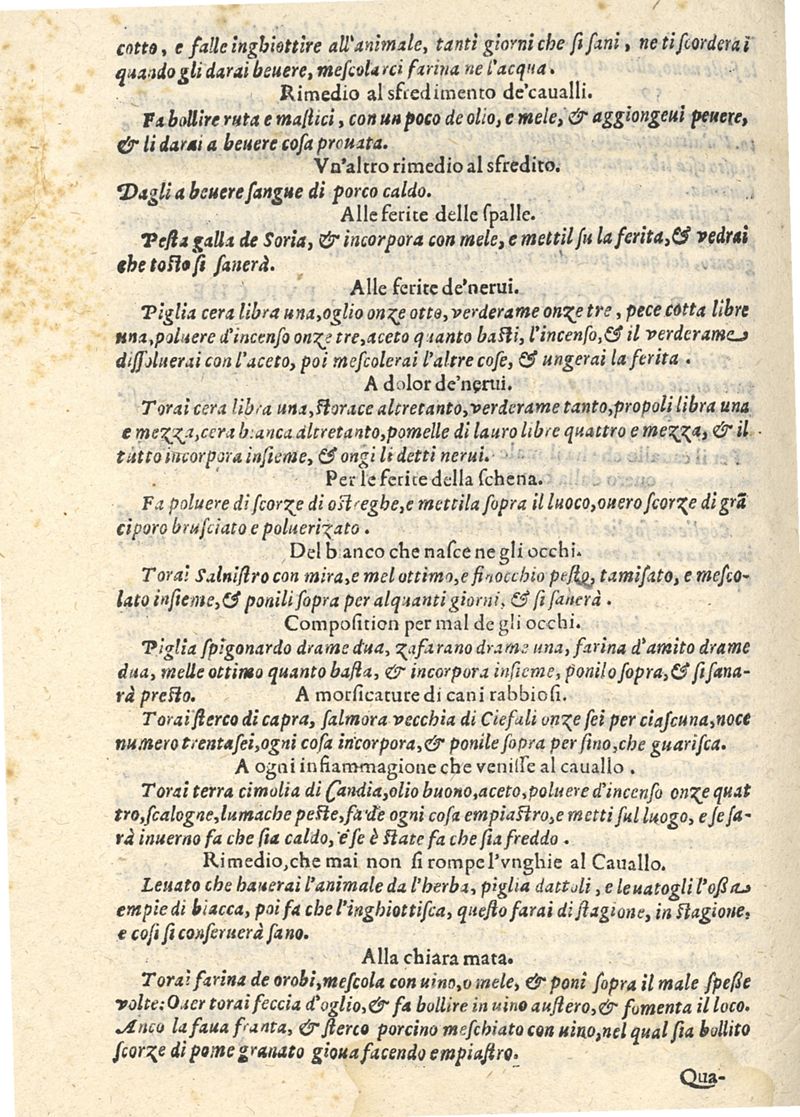 cotto, e falle inghiottire all'animale, tanti giorni che si sani, ne ti scorderai
quando gli darai beuere, mescolarci farina ne l'acqua.
Rimedio al sfredimento de'caualli.
Fa bollire ruta e mastici, con un poco de olio, e mele, & aggiongeui peuere,
& li darai a beuere cosa prouata.
Vn'altro rimedio al sfredito.
Dagli a beuere sangue di porco caldo.
Alle ferite delle spalle.
Pesta galla de Soria, & incorpora con mele, e mettil su la ferita, & vedrai
che tosto si sanerà.
Alle ferite de'nerui.
Piglia cera libra una, oglio onze otto, verderame onze tre, pece cotta libre
una, poluere d'incenso onze tre, aceto quanto basti, l'incenso, & il verderame
dissoluerai con l'aceto, poi mescolerai l'altre cose, & ungerai la ferita.
A dolor de'nerui.
Torai cera libra una, storace altretanto, verderame tanto, propoli libra una
e mezza, cera bianca altretanto, pomelle di lauro libre quattro e mezza, & il
tutto incorpora insieme, & ongi li detti nerui.
Per le ferite della schena.
Fa poluere di scorze di ostreghe, e mettila sopra il luoco, ouero scorze di grā
ciporo brusciato e poluerizato.
Del bianco che nasce ne gli occhi.
Torai Salnistro con mira, e mel ottimo, e finocchio pesto, tamisato, e mesco-
lato insieme, & ponili sopra per alquanti giorni, & si sanerà.
Composition per mal de gli occhi.
Piglia spigonardo drame dua, zafarano drame una, farina d'amito drame
dua, melle ottimo quanto basta, & incorpora insieme, ponilo sopra, & si sana-
rà presto. A morsicature di cani rabbiosi.
Torai sterco di capra, salmora vecchia di Ciefali onze sei per ciascuna, noce
numero trentasei, ogni cosa incorpora, & ponile sopra per sino, che guarisca.
A ogni infiammagione che venisse al cauallo.
Torai terra cimolia di Candia, olio buono, aceto, poluere d'incenso onze quat
tro, scalogne, lumache peste, fa de ogni cosa empiastro, e metti sul luogo, e se sa-
rà inuerno fa che sia caldo, e se è state fa che sia freddo.
Rimedio, che mai non si rompe l'vnghie al Cauallo.
Leuato che hauerai l'animale da l'herba, piglia dattoli, e leuatogli l'ossa
empie di biacca, poi fa che l'inghiottisca, questo farai di stagione, in stagione,
e cosi si conseruerà sano.
Alla chiara mata.
Torai farina de orobi, mescola con uino, o mele, & poni sopra il male spesse
volte: Ouer torai feccia d'oglio, & fa bollire in uino austero, & fomenta il loco.
Anco la faua franta, & sterco porcino meschiato con uino, nel qual sia bollito
scorze di pome granato gioua facendo empiastro.
Qua-